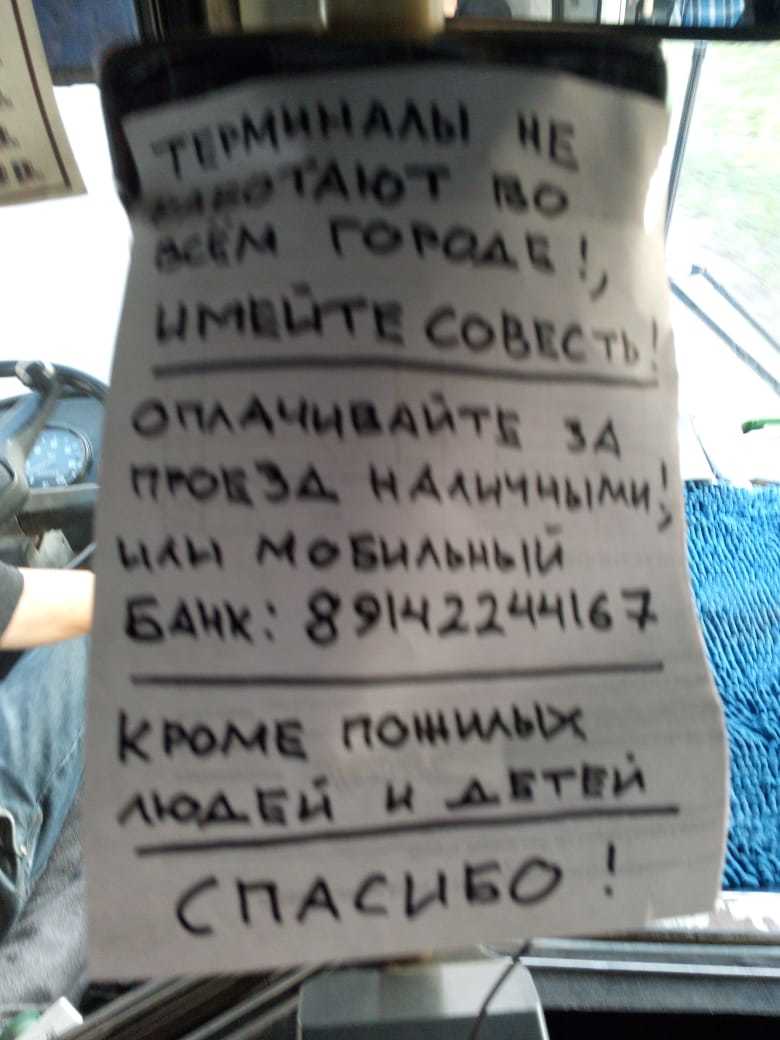 ТЕРМИНАЛЫ НЕ
РАБОТАЮТ ВО
ВСЕМ ГОРОДЕ!,
ИМЕЙТЕ СОВЕСТЬ!
ОПЛАЧИВАЙТЕ ЗА
ПРОЕЗД НАЛИЧНЫМИ!,
ИЛИ МОБИЛЬНЫЙ
БАНК: 89142244167
КРОМЕ ПОЖИЛЫХ
ЛЮДЕЙ И ДЕТЕЙ
СПАСИБО!